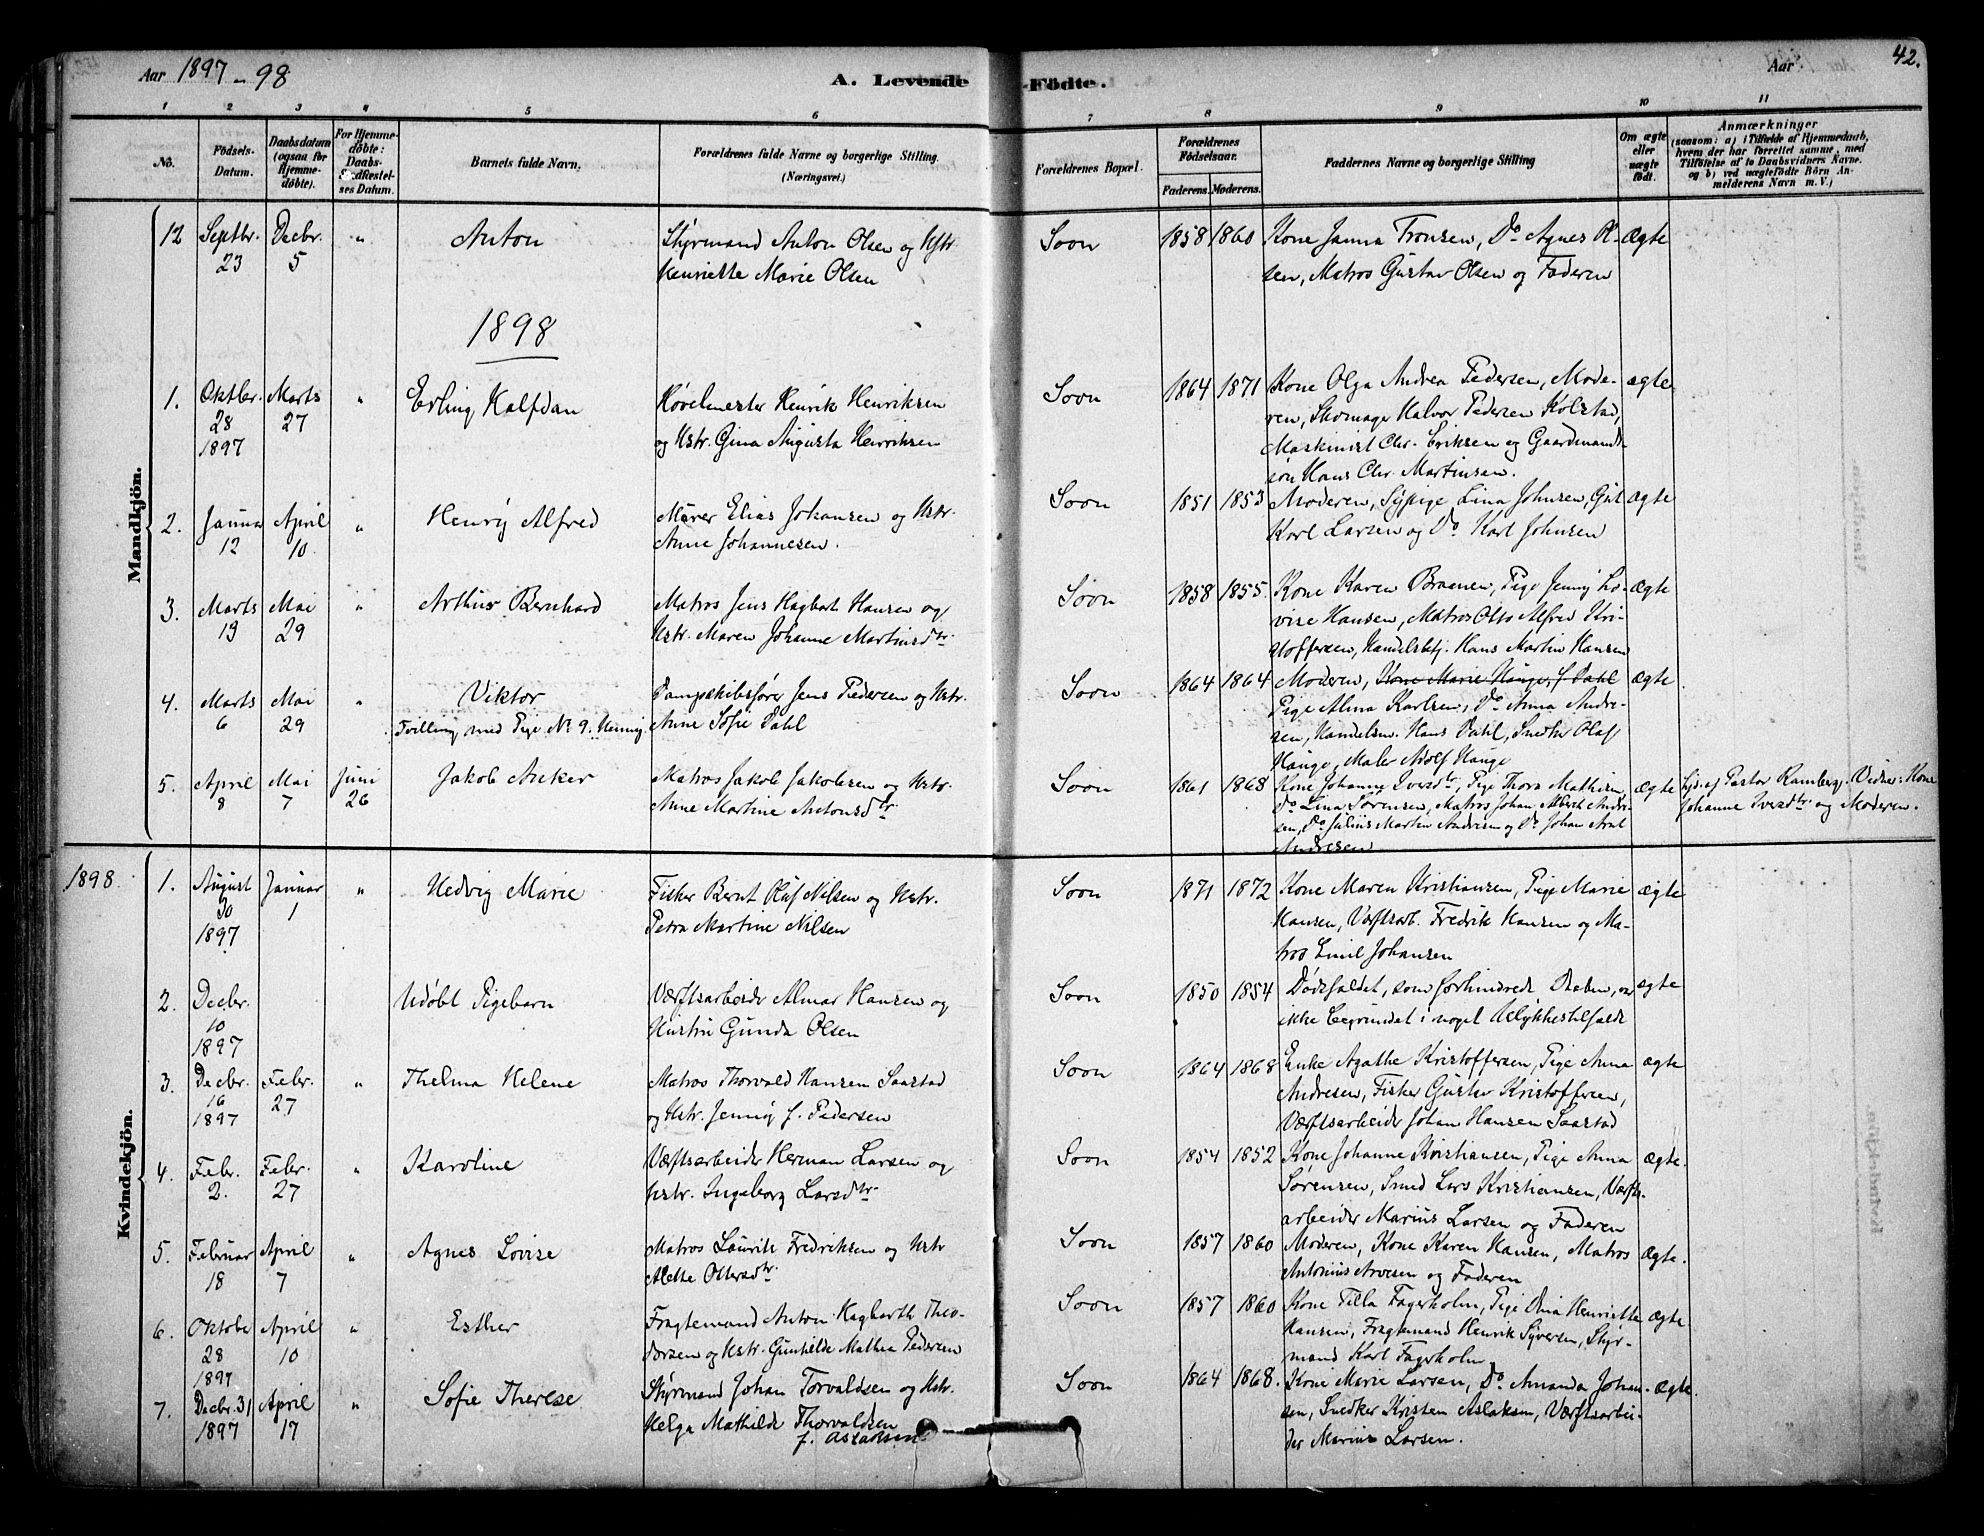 Aar 1897-98
A. Levende
-Födte.
Aar
42.
1 2 3 4 5 6 7 8 9 10 11
No.
Födsels-Datum.
Daabsdatum (ogsaa før Hjemme-døbte).
For Hjemme-døbte: Daabs-Stadfæstel-ses Datum.
Barnets fulde Navn.
Forældrenes fulde Navne og borgerlige Stilling.
(Næringsvei.)
Forældrenes Bopæl.
Forældrenes Födselsaar.
Faderens. Moderens.
Faddernes Navne og borgerlige Stilling
Om ægte eller uægte født.
Anmærkninger
(saasom: a) i Tilfælde af Hjemmedaab, hvem der har forrettet samme, med Tilføielse af to Daabsvidners Navne. og b) ved uægtefødte Børn An-melderens Navn m. V.)
Mandkjön.
12 Septbr. 23 Decbr. 5 " Anton
Styrmand Anton Olsen og Hstr.
Henriette Marie Olsen
Soon 1858 1860
Kone Janna Tronsen, Do Agnes Ol-
sen, Matros Gustav Olsen og Faderen
ægte
1898
1. Oktbr. 28 1897 Marts 27 " Erling Halfdan
Høvelmester Henrik Henriksen
og Hstr. Gina Augusta Henriksen
Soon 1864 1871
Kone Olga Andrea Pedersen, Mode-
ren, Skomager Halvor Pedersen Kolstad,
Maskinist Chr. Eriksen og Gaardmands-
søn Hans Chr. Martinsen.
ægte
2. Januar 12 April 10. " Henry Alfred
Murer Elias Johansen og Hstr.
Anne Johannesen.
Soon 1851 1853
Moderen, Sypige Lina Johnsen, Gut
Karl Larsen og Do Karl Johnsen
ægte
3. Marts 19 Mai 29 " Arthur Bernhard
Matros Jens Hagbart Hansen og
Hstr. Maren Johanne Martinsdtr.
Soon 1858 1855.
Kone Karen Braenen, Pige Jenny Lo-
vise Hansen, Matros Otto Alfred Kri-
stoffersen, Handelsbetj. Hans Martin Hansen
ægte
4. Marts 6 Mai 29 " Viktor
Tvilling med Pige No 9. Henny.
Dampskibsfører Jens Pedersen og Hstr.
Anne Sofie Dahl
Soon 1864 1864
Moderen, Kone Marie Hauge, f. Dahl
Pige Alma Karlsen, Do Anna Andre-
sen, Handelsm. Hans Dahl, Snedker Olaf
Hauge, Maler Adolf Hauge
ægte
5. April 8 Mai 7 Juni 26 Jakob Anker
Matros Jakob Jakobsen og Hstr.
Anne Martine Antonsdtr
Soon 1861 1868
Kone Johanne Iversdtr, Pige Thora Mathisen,
Do Lina Sørensen, Matros Johan Albert Andre-
sen, Do Julius Martin Andresen og Do Johan Arnt
Andresen
ægte
Hjd. af Pastor Ramberg. Vidner: Kone
Johanne Iversdtr og Moderen.
Kvindekjön.
1898.
1. August 30 1897 Januar 1 " Hedvig Marie
Fisker Bernt Oluf Nilsen og Hstr.
Petra Martine Nilsen
Soon 1871 1872
Kone Maren Kristiansen, Pige Marie
Hansen, Værftsarb. Fredrik Hansen og Ma-
tros Emil Johansen
ægte
2. Decbr. 10 1897 Udøbt Pigebarn
Værftsarbeider Almar Hansen og
Hustru Gunda Olsen
Soon 1850 1854
Dødsfaldet, som forhindrede Daaben, var
ikke begrundet i noget Ulykkestilfælde
ægte
3. Decbr. 16 1897 Febr. 27 " Thelma Helene
Matros Thorvald Hansen Saastad
og Hstr. Jenny f. Pedersen
Soon 1864 1868
Enke Agathe Kristoffersen, Pige Anna
Andresen, Fisker Gustav Kristoffersen,
Værftsarbeider Johan Hansen Saastad
ægte
4. Febr. 2. Febr. 27 " Karoline
Værftsarbeider Herman Larsen og
Hstr. Ingeborg Larsdtr.
Soon 1854 1852
Kone Johanne Kristiansen, Pige Anna
Sørensen, Smed Lars Kristiansen, Værfts-
arbeider Marius Larsen og Faderen
ægte.
5. Februar 18 April 7 " Agnes Lovise
Matros Lauritz Fredriksen og Hstr
Alette Ottersdtr.
Soon 1857 1860
Moderen, Kone Karen Hansen, Matros
Antonius Arvesen og Faderen
ægte.
6. Oktober 28 1897 April 10 " Esther
Fragtemand Anton Hagbarth Theo-
dorsen og Hstr. Gunhilde Mathea Pedersen
Soon 1857 1860
Kone Tilla Fagerholm, Pige Dina Henriette
Hansen, Fragtemand Henrik Syversen, Styr-
mand Karl Fagerholm
ægte
7. Decbr. 31 1897 April 17 " Sofie Therese
Styrmand Johan Torvaldsen og Hstr.
Helga Mathilde Thorvaldsen
f. Aslaksen.
Soon 1864 1868.
Kone Marie Larsen, Do Amanda Johan-
sen, Snedker Kristen Aslaksen, Værftsarbei-
der Marius Larsen.
ægte.